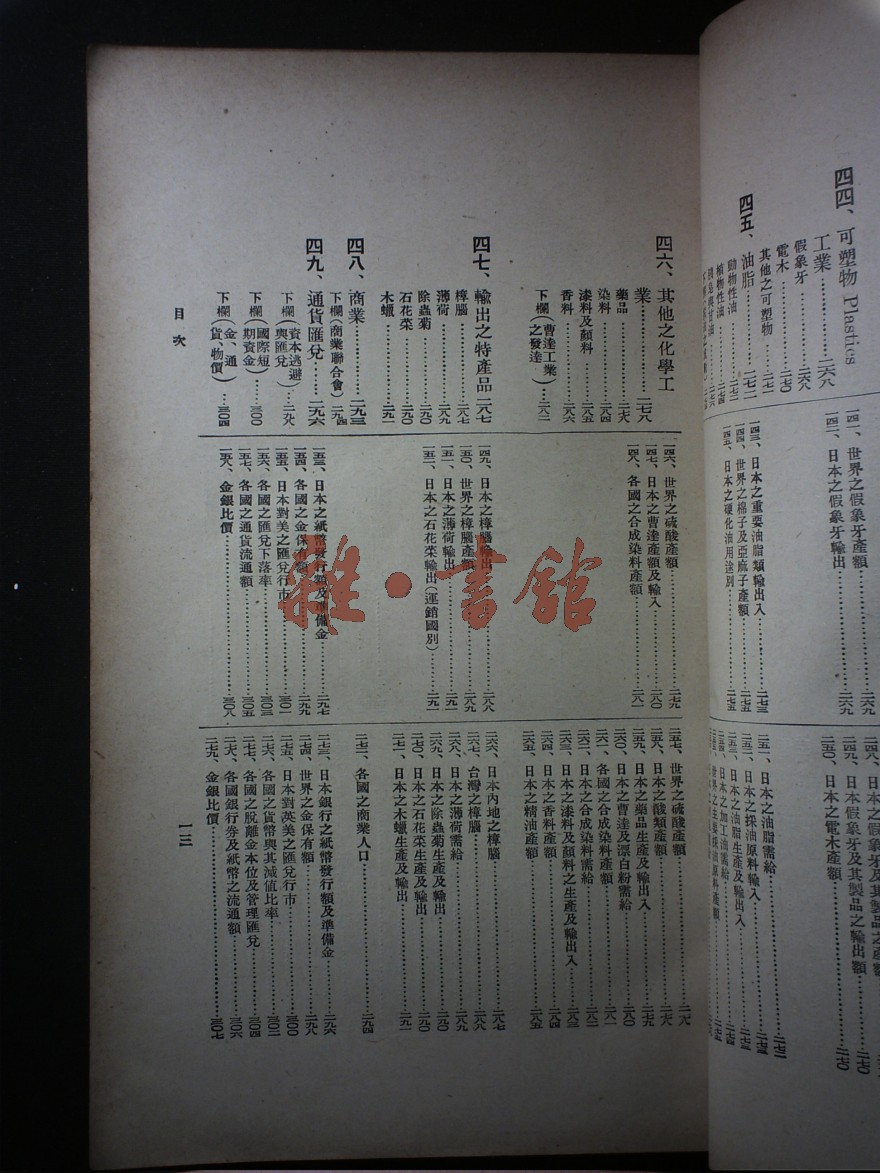 四四、可塑物 Plastics
工業……二六八
假象牙……二六八
電木……二七〇
其他之可塑物……二七一
四五、油脂……二七二
動物性油……二七二
植物性油……二七四
一四一、世界之假象牙產額……二六九
一四二、日本之假象牙輸出……二六九
一四三、日本之重要油脂類輸出入……二七三
一四四、世界之棉子及亞麻子產額……二七五
一四五、日本之硬化油用途別……二七五
二四八、日本之假象牙及其製品之產額
二四九、日本假象牙及其製品之輸出額……二七〇
二五〇、日本之電木產額……二七〇
二五一、日本之油脂需給……二七二
二五二、日本之採油原料輸入……二七三
二五三、日本之油脂生產及輸出入……二七三
二五四、日本之加工油需給……二七四
四六、其他之化學工
業……二七八
藥品……二七九
染料……二八四
漆料及顏料……二八五
香料……二八六
下欄(曹達工業之發達)……二八二
四七、輸出之特產品二八七
樟腦……二八七
薄荷……二八九
除蟲菊……二九〇
石花菜……二九〇
木蠟……二九一
四八、商業……二九三
下欄(商業聯合會)二九四
四九、通貨匯兌……二九六
下欄(資本逃避與匯兌)……二九八
下欄(國際短期資金)……三〇〇
下欄(金、通貨、物價)……三〇四
一四六、世界之硫酸產額……二七九
一四七、日本之曹達產額及輸入……二八〇
一四八、各國之合成染料產額……二八一
一四九、日本之樟腦輸出……二八八
一五〇、世界之樟腦產額……二八九
一五一、日本之薄荷輸出……二九一
一五二、日本之石花菜輸出(運銷國別)……二九一
一五三、日本之紙幣發行額及準備金……二九七
一五四、各國之金保有額……二九九
一五五、日本對美之匯兌行市……三〇一
一五六、各國之匯兌下落率……三〇三
一五七、各國之通貨流通額……三〇五
一五八、金銀比價……三〇八
二五七、世界之硫酸產額……二七八
二五八、日本之酸類產額……二七八
二五九、日本之藥品生產及輸出入……二七九
二六〇、日本之曹達及漂白粉需給……二八〇
二六一、各國之合成染料產額……二八一
二六二、日本之合成染料需給……二八二
二六三、日本之漆料及顏料之生產及輸出入……二八三
二六四、日本之香料產額……二八五
二六五、日本之精油產額……二八五
二六六、日本內地之樟腦……二八七
二六七、台灣之樟腦……二八八
二六八、日本之薄荷需給……二八九
二六九、日本之除蟲菊生產及輸出……二九〇
二七〇、日本之石花菜生產及輸出……二九〇
二七一、日本之木蠟生產及輸出……二九一
二七二、各國之商業人口……二九四
二七三、日本銀行之紙幣發行額及準備金……二九六
二七四、世界之金保有額……二九八
二七五、日本對英美之匯兌行市……三〇〇
二七六、各國之貨幣與其減值比率……三〇二
二七七、各國之脫離金本位及管理匯兌……三〇四
二七八、各國銀行券及紙幣之流通額……三〇六
二七九、金銀比價……三〇七
目次
一三
雅·書館